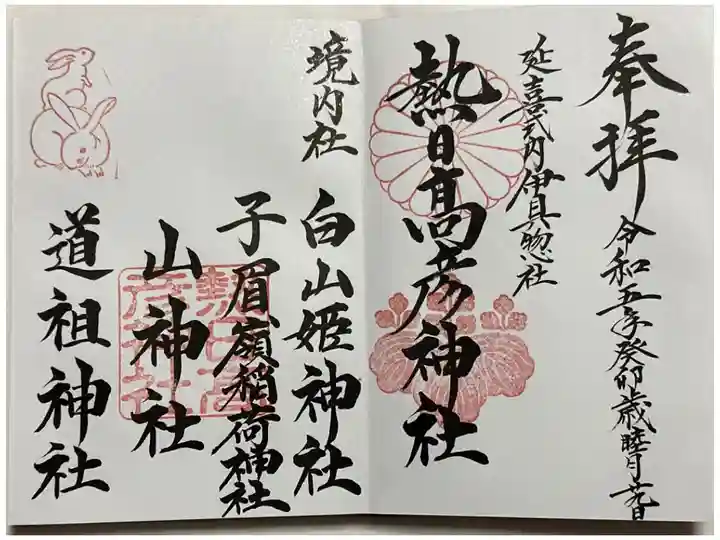 奉拝
令和五年癸卯歳睦月廿九日
延喜式内伊具惣社
熱日高彦神社
境内社
白山姫神社
子眉嶺稲荷神社
山神社
道祖神社